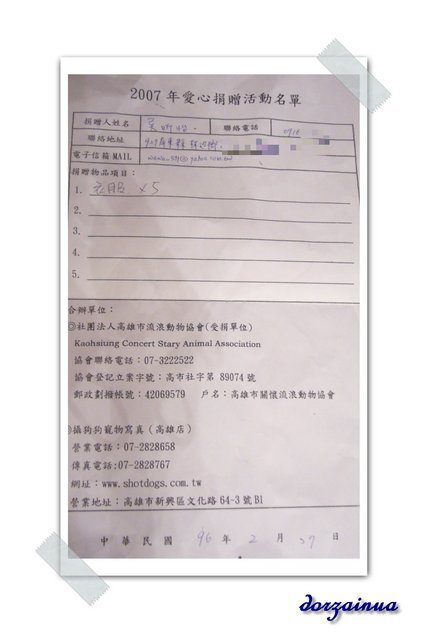 2007 年愛心捐贈活動名單
捐贈人姓名 吳 聯絡電話 0918
聯絡地址 929屏東縣琉球鄉
電子信箱MAIL
捐贈物品項目：
1. 衣服 x5
2.
3.
4.
5.
合辦單位：
◎社團法人高雄市流浪動物協會(受捐單位)
Kaohsiung Concert Stary Animal Association
協會聯絡電話：07-3222522
協會登記立案字號：高市社字第 89074 號
郵政劃撥帳號：42069579 戶名：高雄市關懷流浪動物協會
◎攝狗狗寵物寫真（高雄店）
營業電話：07-2828658
傳真電話:07-2828767
網址：www.shotdogs.com.tw
營業地址：高雄市新興區文化路 64-3 號 B1
中 華 民 國 96 年 2 月 27 日
dorzainua